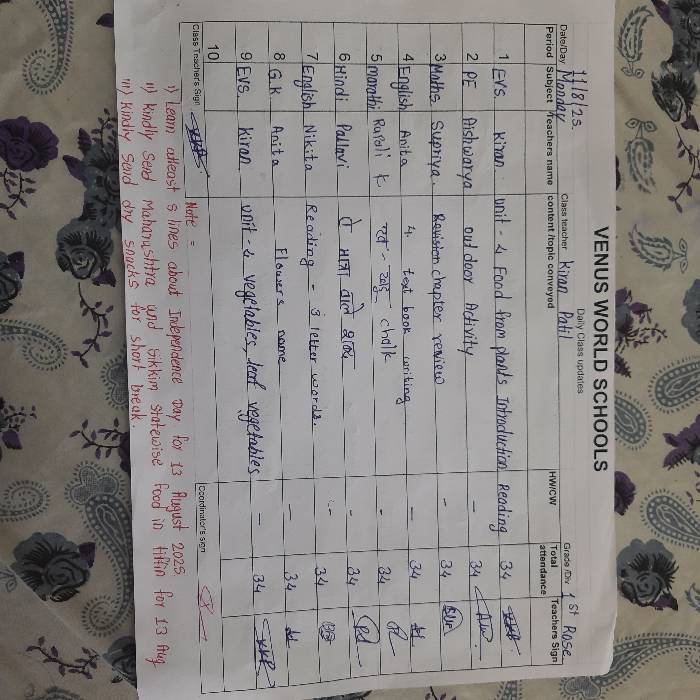 VENUS WORLD SCHOOLS
Daily Class updates
Date/Day 11/8/25 Monday Class teacher Kiran Patil Grade /Div 1st Rose
Period Subject Teachers name content /topic conveyed HW/CW Total attendance Teachers Sign
1 EVS Kiran unit - 4 Food from plants Introduction Reading 34
2 PE Aishwarya out door Activity - 34
3 Maths Supriya. Revision chapter review - 34
4 English Anita 4. text book writing - 34
5 Marathi Rupali K chalk - 34
6 Hindi Pallavi - 34
7 English Nikita Reading - 3 letter words. - 34
8 G.K Anita Flowers name - 34
9 EVS. Kiran unit - 4 vegetables, leaf vegetables - 34
10
Class Teacher's Sign Coordinator's sign
Note =
i) Learn atleast 5 lines about Independence Day for 13 August 2025
ii) Kindly Send Maharashtra and Sikkim statewise food in tiffin for 13 Aug
iii) Kindly Send dry snacks for short break.